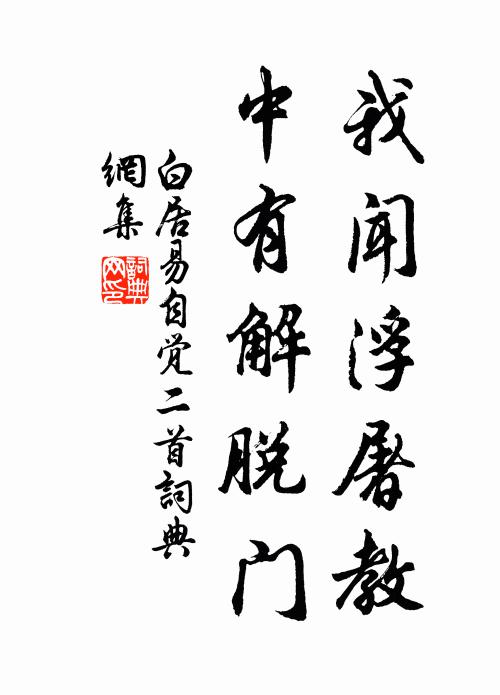 我闻浮屠教
中有解脱门
白居易自觉二首詞典
網集
詞典
网印